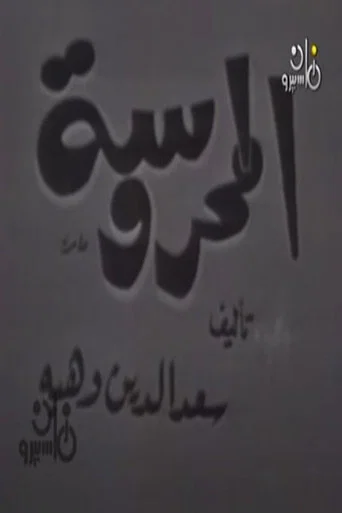 ماسبيرو
زمان
المحروسة
تأليف
سعد الدين وهبه
ماسبيرو
زمان